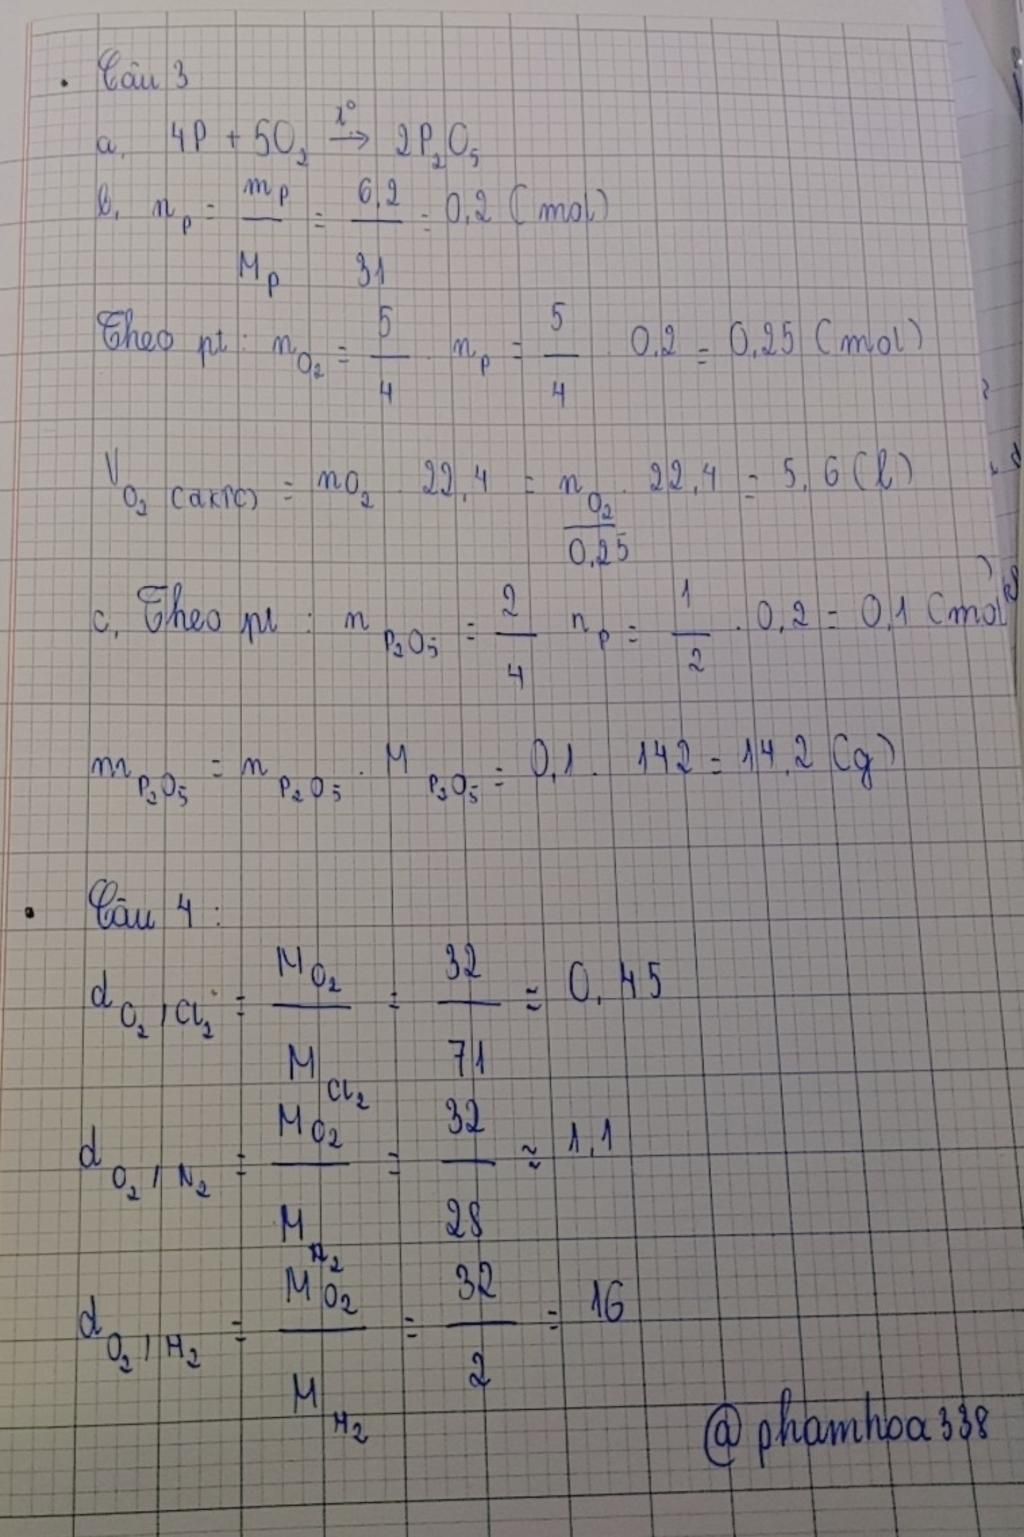 Câu 3
a, 4P + 5O₂ →(t°) 2P₂O₅
b, n_P = m_P/M_P = 6,2/31 = 0,2 (mol)
Theo pt : n_O₂ = 5/4 . n_P = 5/4 . 0,2 = 0,25 (mol)
V_O₂ (đktc) = n_O₂ . 22,4 = n_O₂/0,25 . 22,4 = 5,6 (l)
c, Theo pt : n_P₂O₅ = 2/4 n_P = 1/2 . 0,2 = 0,1 (mol)
m_P₂O₅ = n_P₂O₅ . M_P₂O₅ = 0,1 . 142 = 14,2 (g)
Câu 4 :
d_O₂/Cl₂ = M_O₂/M_Cl₂ = 32/71 ≈ 0,45
d_O₂/N₂ = M_O₂/M_N₂ = 32/28 ≈ 1,1
d_O₂/H₂ = M_O₂/M_H₂ = 32/2 = 16
@phamhoa338